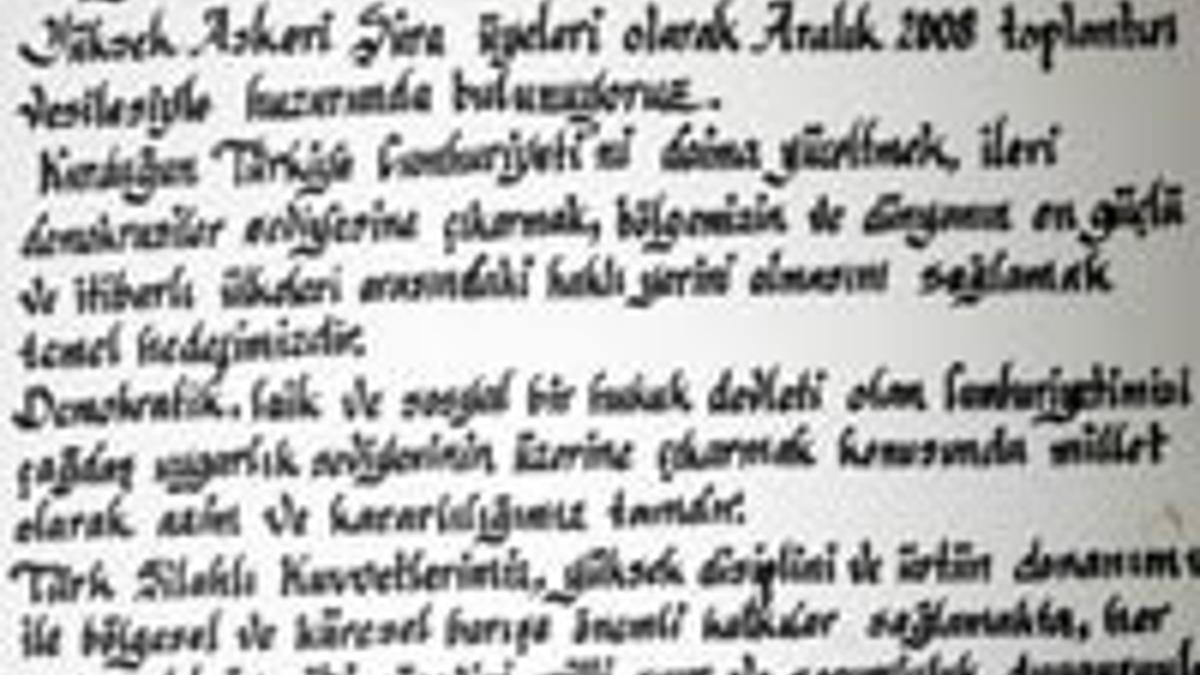 Yüksek Askeri Şûra üyeleri olarak Aralık 2008 toplantısı
vesilesiyle huzurunda bulunuyoruz.
Kurduğun Türkiye Cumhuriyeti'ni daima yüceltmek, ileri
demokrasiler seviyesine çıkarmak, bölgemizin ve dünyanın en güçlü
ve itibarlı ülkeleri arasındaki haklı yerini almasını sağlamak
temel hedefimizdir.
Demokratik, laik ve sosyal bir hukuk devleti olan Cumhuriyetimizi
çağdaş uygarlık seviyesinin üzerine çıkarmak konusunda millet
olarak azim ve kararlılığımız tamdır.
Türk Silahlı Kuvvetlerimiz, yüksek disiplini ve üstün donanımı
ile bölgesel ve küresel barışa önemli katkılar sağlamakta, her